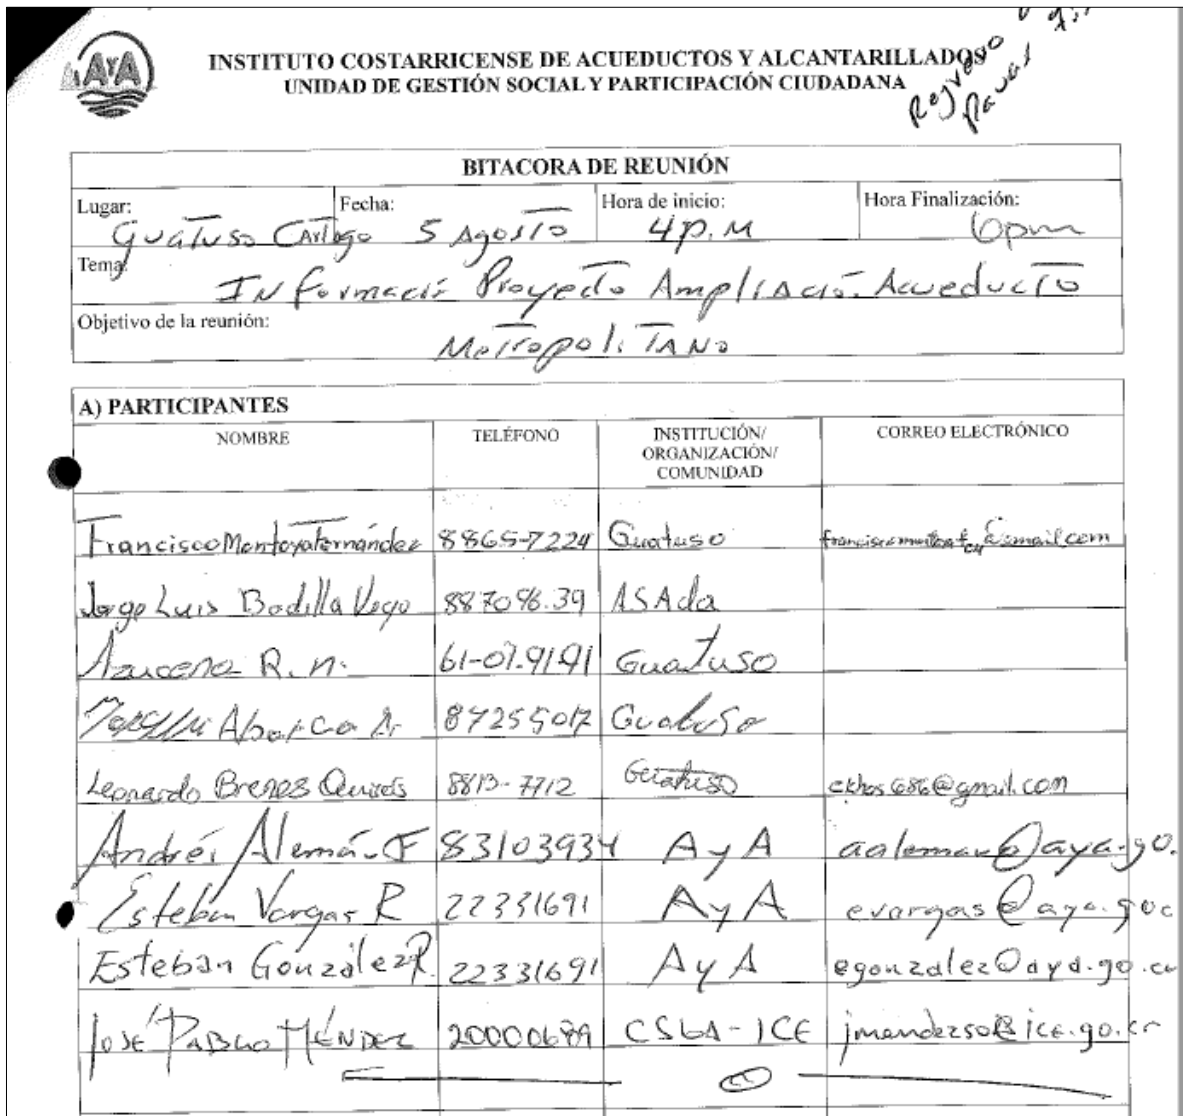 AYA
INSTITUTO COSTARRICENSE DE ACUEDUCTOS Y ALCANTARILLADOS
UNIDAD DE GESTIÓN SOCIAL Y PARTICIPACIÓN CIUDADANA
BITACORA DE REUNIÓN
Lugar: Guatuso Cartago Fecha: 5 Agosto Hora de inicio: 4 p.m Hora Finalización: 6pm
Tema: Informació Proyecto Ampliació Acueducto
Objetivo de la reunión: Metropolitano
A) PARTICIPANTES
NOMBRE TELÉFONO INSTITUCIÓN/ CORREO ELECTRÓNICO
ORGANIZACIÓN/
COMUNIDAD
Francisco Montoya Fernández 8865-7224 Guatuso
Jorge Luis Badilla Vega 887096.39 ASAda
Azucena R. n. 61-07.9191 Guatuso
Abarca 87255017 Guatuso
Leonardo Brenes Quirós 8813-7712 Guatuso
Andrés Alemán F 83103934 AyA aaleman@aya.go.
Esteban Vargas R 22331691 AyA evargas@aya.go.c
Esteban González R. 22331691 AyA egonzalez@aya.go.cr
José Pablo Méndez 20000689 jmendezso@ice.go.cr